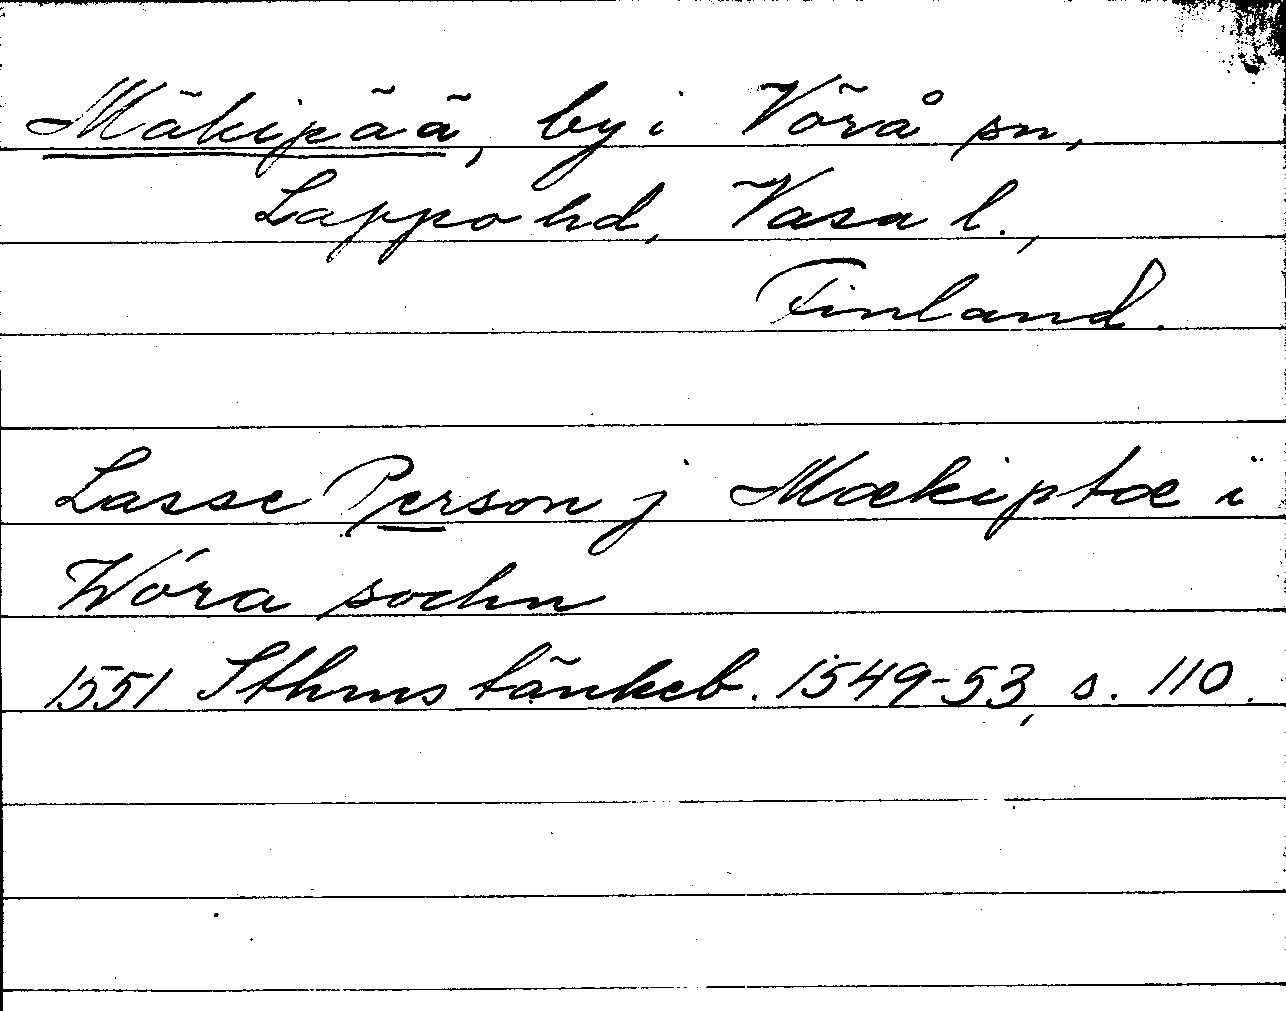 Mäkipää, by i Vörå sn,
Lappo hd, Vasa l.,
Finland.
Lasse Person j Mækiptæ i
Wóra sochn
1551 Sthms tänkeb. 1549-53, s. 110.